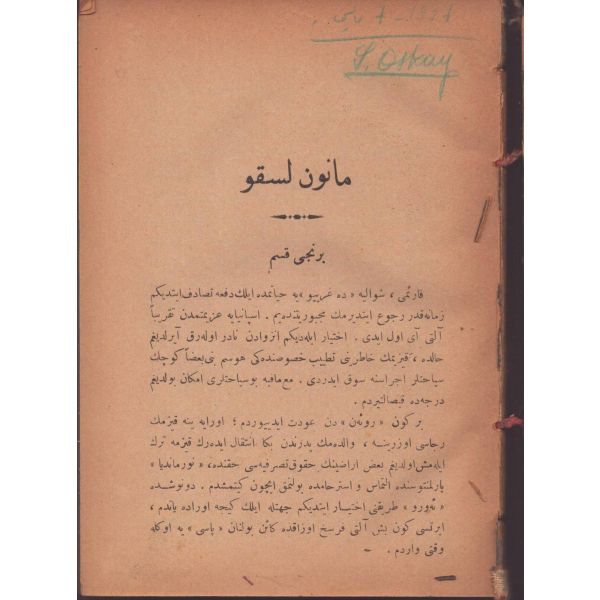 S. Oskay
مانون لسقو
برنجی قسم
قارئمی ، شوالیه « ده غریو » یه حیاتمده ایلك دفعه تصادف ایتدیكم
زمانه قدر رجوع ایتدیرمك مجبوریتنده‌یم . اسپانیایه عزیمتمدن تقریباً
آلتی آی اول ایدی . اختیار ایله‌دیكم انزوادن نادر اوله‌رق آیرلدیغم
حالده ، قیزیمك خاطرینی تطییب خصوصنده‌كی هوسم بنی بعضاً كوچك
سیاحتلر اجراسنه سوق ایدردی . مع مافیه بو سیاحتلری امكان بولدیغم
درجه‌ده قیصالتیردم .
بر كون « روئه‌ن » دن عودت ایدییوردم ؛ اورایه ینه قیزمك
رجاسی اوزرینه ، والده‌مك پدرندن بكا انتقال ایده‌رك قیزمه ترك
ایله‌مش اولدیغم بعض اراضینك حقوق تصرفیه‌سی حقنده ، « نورماندیا »
پارلمنتوسنده التماس و استرحامده بولنمق ایچون كیتمشدم . دونوشده
« نه‌ورو » طریقنی اختیار ایتدیكم جهتله ایلك كیجه اوراده یاتدم ،
ایرتسی كون بش آلتی فرسخ اوزاقده كائن بولنان « پاسی » یه اوكله
وقتی واردم . –